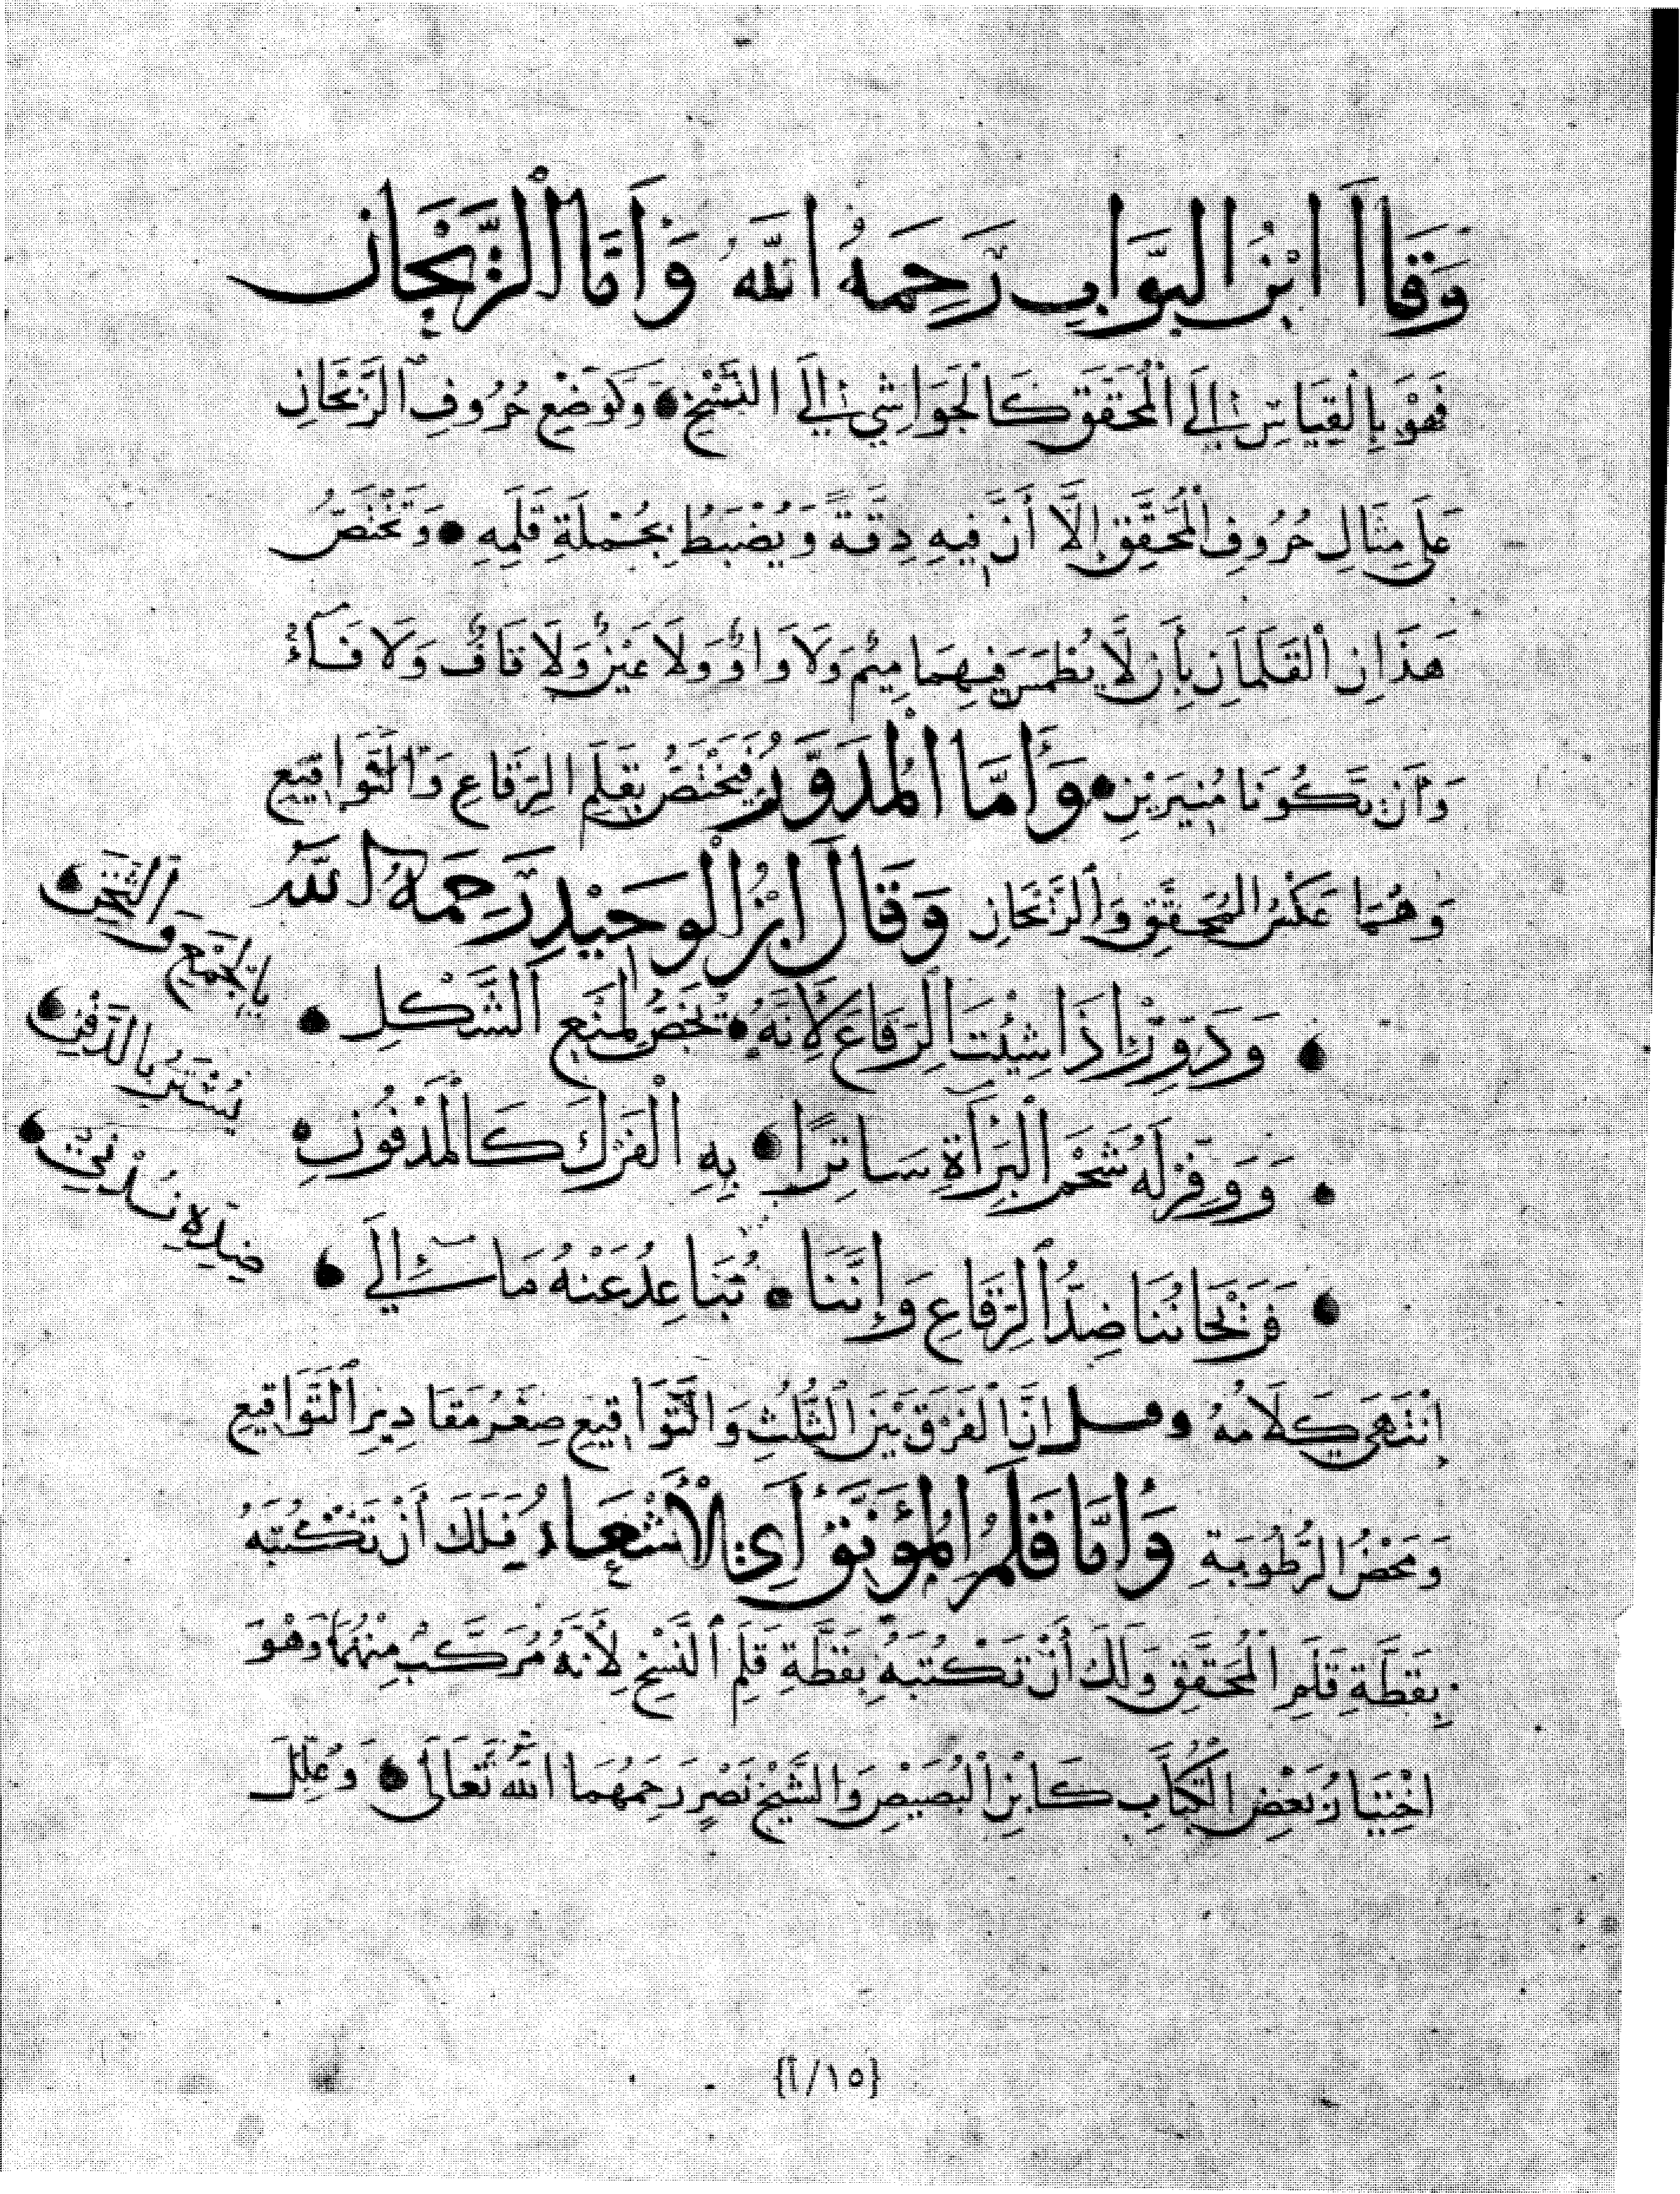 وَقَالَ ابْنُ البَوَّابِ رَحِمَهُ اللَّهُ وَأَمَّا الرَّيْحَانِ
فَهُوَ بِالْقِيَاسِ إِلَى الْمُحَقَّقِ كَالْحَوَاشِي إِلَى النَّسْخِ وَكَوَضْعِ حُرُوفِ الرَّيْحَانِ
عَلَى مِثَالِ حُرُوفِ الْمُحَقَّقِ إِلَّا أَنَّ فِيهِ دِقَّةً وَيُضْبَطُ بِجُمْلَةِ قَلَمِهِ وَيَخْتَصُّ
هَذَانِ الْقَلَمَانِ بِأَن لَّا يُطْمَسَ فِيهِمَا مِيمٌ وَلَا وَاوٌ وَلَا عَيْنٌ وَلَا قَافٌ وَلَا فَاءٌ
وَأَنْ تَكُونَا مُنِيرَيْنِ وَأَمَّا الْمُدَوَّرُ فَيَخْتَصُّ بِقَلَمِ الرِّقَاعِ وَالتَّوَاقِيعِ
وَهُمَا عَكْسُ الْمُحَقَّقِ وَالرَّيْحَانِ وَقَالَ ابْنُ الْوَحِيْدِ رَحِمَهُ اللَّه
وَدَوِّرْ إِذَا شِئْتَ الرِّقَاعَ لِأَنَّهُ تَخُصُّ لِمَنْعِ الشَّكْلِ
بِالْجَمْعِ وَالثَّخَنِ
وَوَفِّرْ لَهُ شَحْمَ الْبَرَاةِ سَاتِرًا بِهِ الْفَرْكَ كَالْمَدْفُونِ
يُسْتَرُ بِالدَّفْنِ
فَرَيْحَانُنَا ضِدُّ الرِّقَاعِ وَإِنَّنَا تُبَاعِدُ عَنْهُ مَا إِلَى
ضِدِّهِ نُدْنِي
انْتَهَى كَلَامُهُ وقيل إِنَّ الْفَرْقَ بَيْنَ الثُّلُثِ وَالتَّوَاقِيعِ صِغَرُ مَقَادِيرِ التَّوَاقِيعِ
وَمَحْضُ الرُّطُوبَةِ وَأَمَّا قَلَمُ الْمُؤَنَّقِ أَيِ الْأَشْعَارِ فَلَكَ أَنْ تَكْتُبَهُ
بِقَطَّةِ قَلَمِ الْمُحَقَّقِ وَلَكَ أَنْ تَكْتُبَهُ بِقَطَّةِ قَلَمِ النَّسْخِ لِأَنَّهُ مُرَكَّبٌ مِنْهُمَا وَهُوَ
اخْتِيَارُ بَعْضِ الْكُتَّابِ كَابْنِ الْبُصَيْصِ وَالشَّيْخِ نَصْرٍ رَحِمَهُمَا اللَّهُ تَعَالَى وَعُلِّلَ
{١٥/أ}